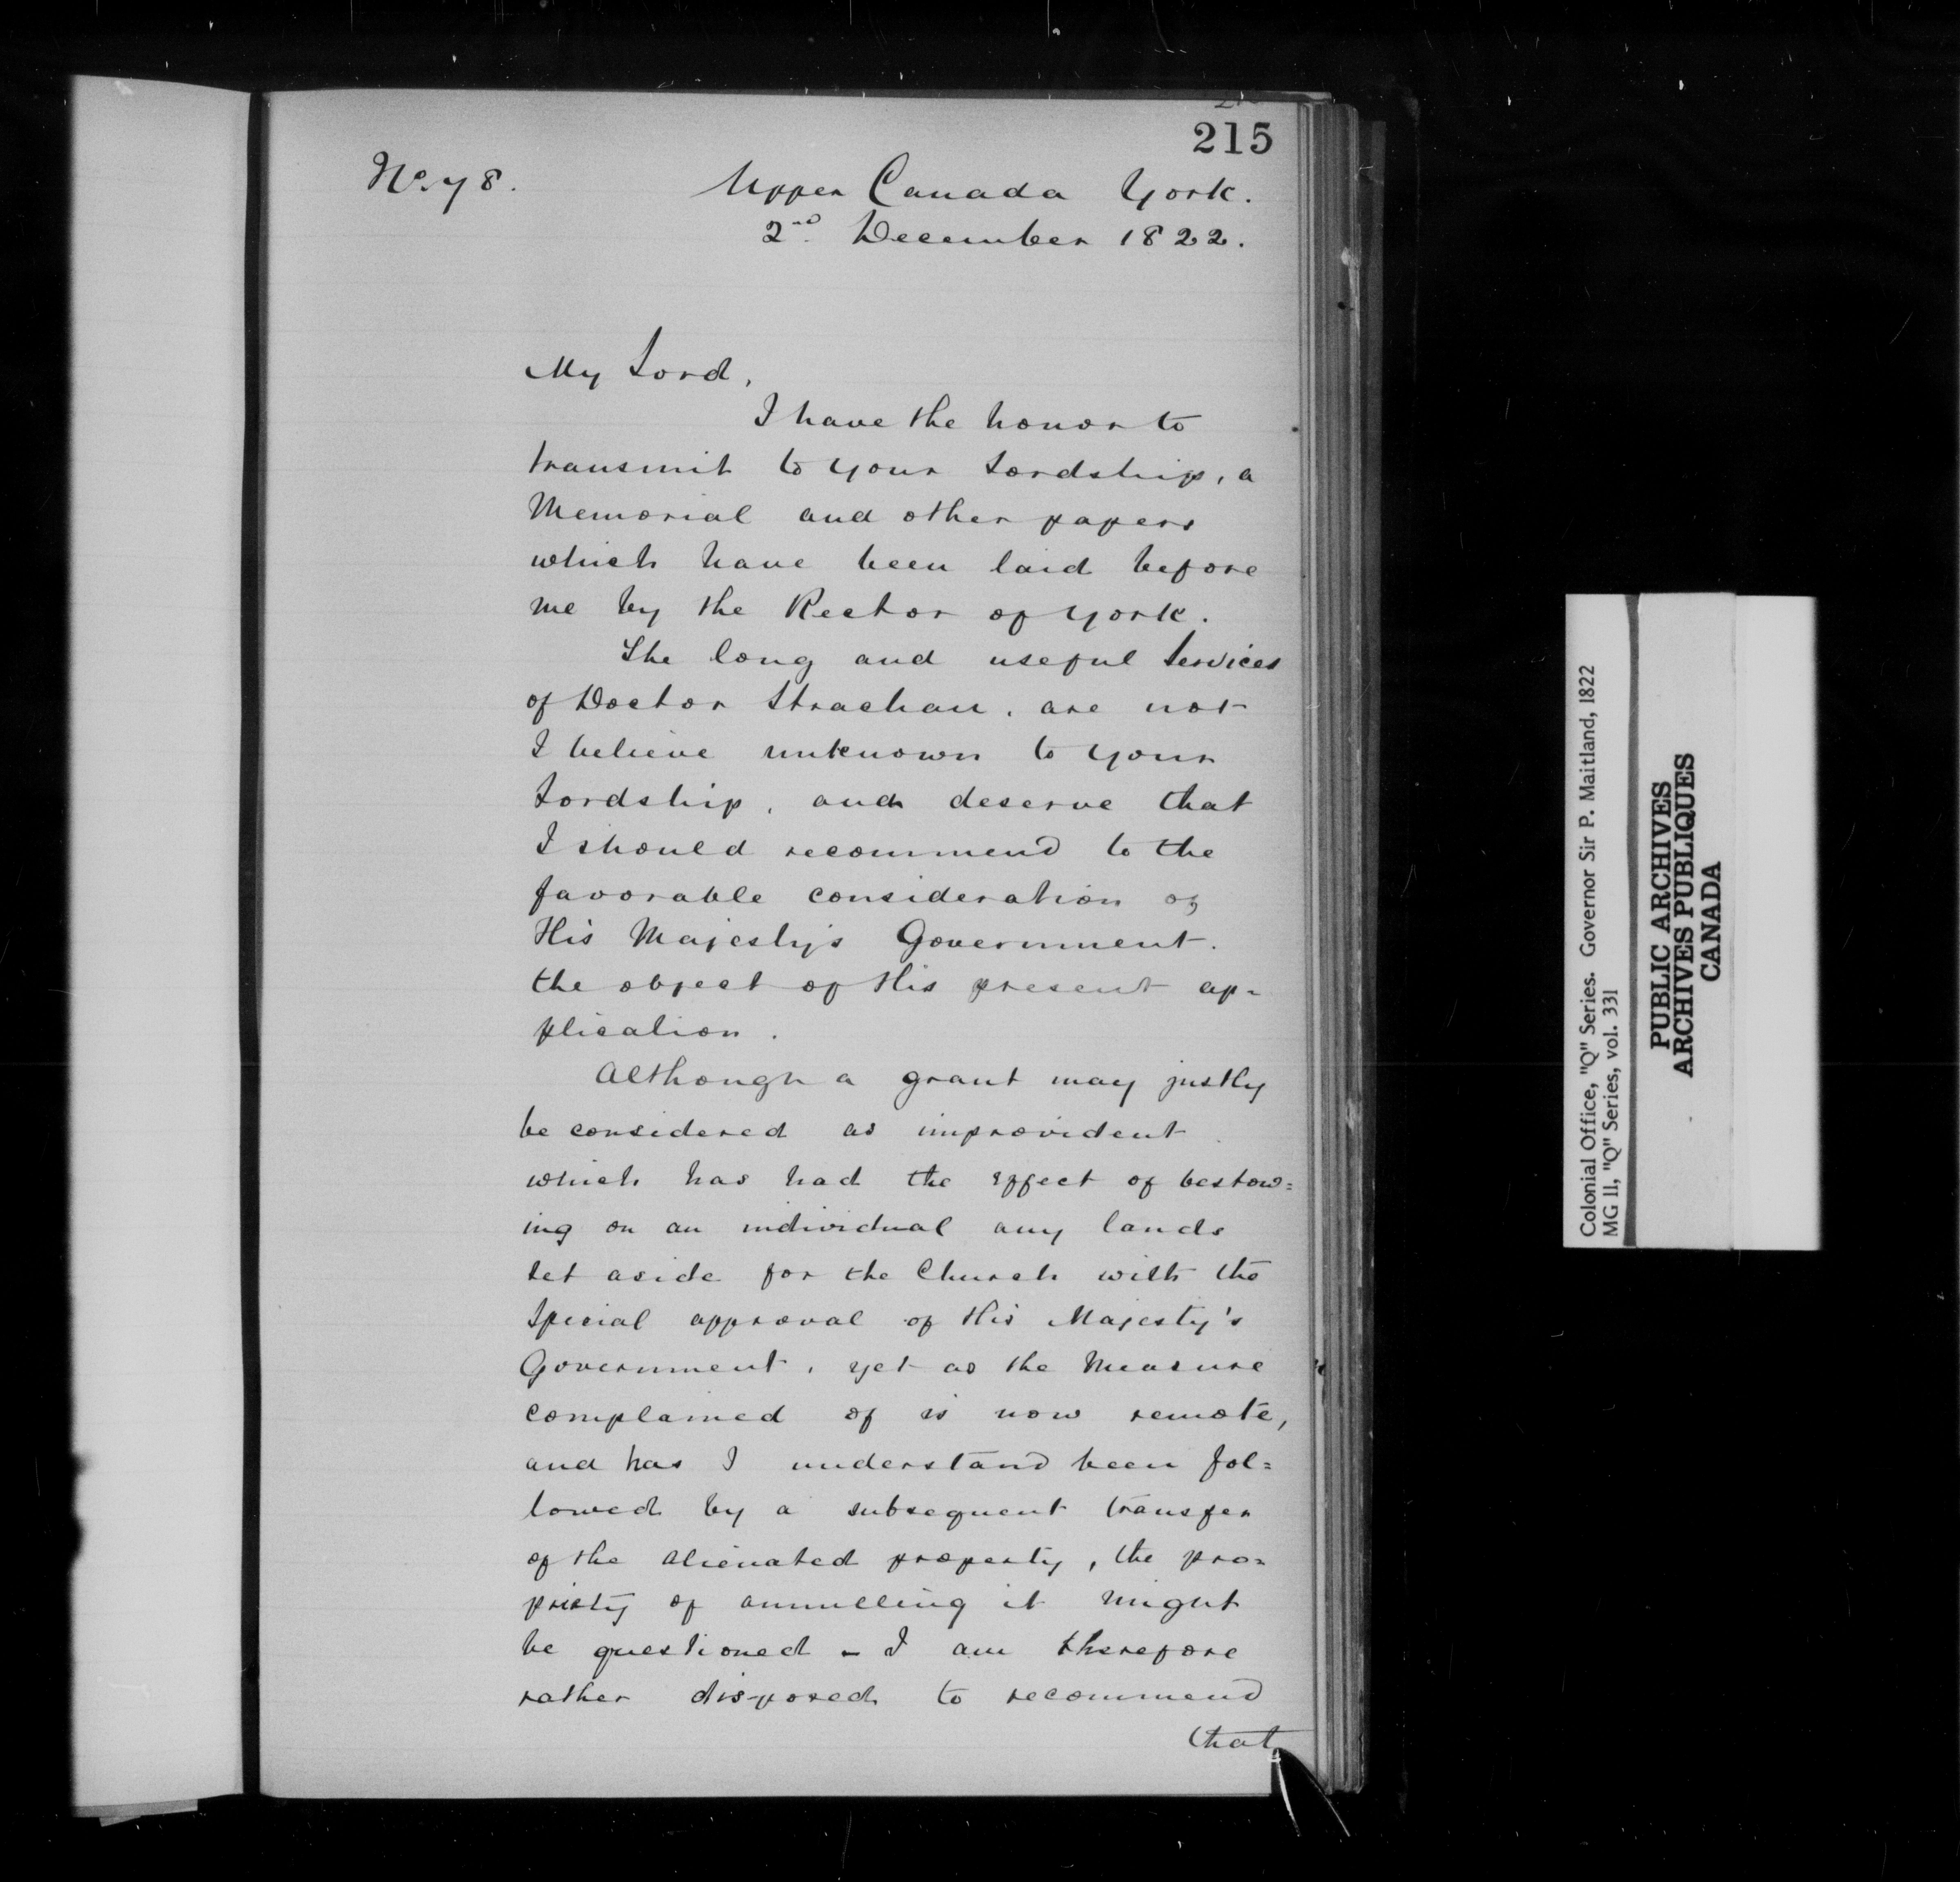 215
No. 78.
Upper Canada York.
2nd December 1822.
My Lord,
I have the honor to
transmit to your Lordship, a
Memorial and other papers
which have been laid before
me by the Rector of York.
The long and useful Services
of Doctor Strachan, are not
I believe unknown to your
Lordship, and deserve that
I should recommend to the
favorable consideration of
His Majesty's Government.
the object of His present ap=
plication.
Although a grant may justly
be considered as improvident
which has had the effect of bestow=
ing on an individual any lands
set aside for the Church with the
Special approval of His Majesty's
Government, yet as the Measure
complained of is now remote,
and has I understand been fol=
lowed by a subsequent transfer
of the alienated property, the pro=
priety of annulling it might
be questioned - I am therefore
rather disposed to recommend
that
Colonial Office, "Q" Series. Governor Sir P. Maitland, 1822
MG 11, "Q" Series, vol. 331
PUBLIC ARCHIVES
ARCHIVES PUBLIQUES
CANADA